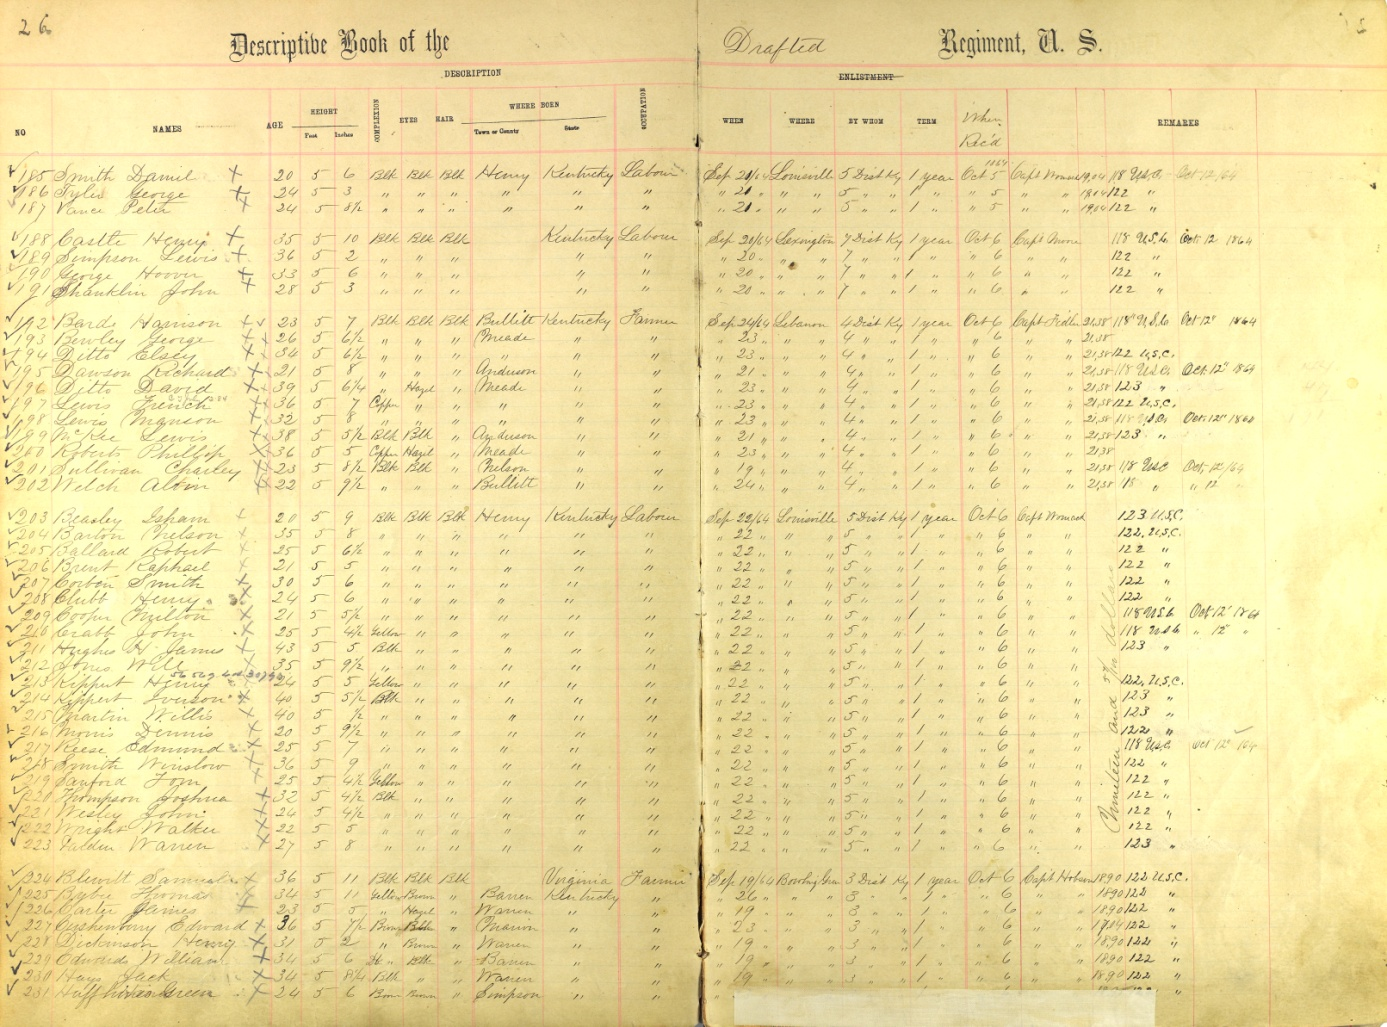 26
Descriptive Book of the Drafted Regiment, U. S.
DESCRIPTION ENLISTMENT
NO NAMES AGE HEIGHT Feet Inches COMPLEXION EYES HAIR WHERE BORN Town or County State OCCUPATION WHEN WHERE BY WHOM TERM When Rec'd REMARKS
185 Smith Daniel X 20 5 6 Blk Blk Blk Henry Kentucky Labour Sep 21/64 Louisville 5 Dist Ky 1 year Oct 5 1864 Capt 118 U.S.C. Oct 12/64
186 Tyler George X 24 5 3 " " " " " " " 21 " " 5 " " 1 " " 5 " " 122 "
187 Vance Peter X 24 5 8 1/2 " " " " " " " 21 " " 5 " " 1 " " 5 " " 122 "
188 Castle Henry X 35 5 10 Blk Blk Blk Kentucky Labour Sep 20/64 Lexington 7 Dist Ky 1 year Oct 6 Capt 118 U.S.C. Oct 12 1864
189 Simpson Lewis X 36 5 2 " " " " " " 20 " " 7 " " 1 " " 6 " " 122 "
190 George Hoover X 33 5 6 " " " " " " 20 " " 7 " " 1 " " 6 " " 122 "
191 Shanklin John X 28 5 3 " " " " " " 20 " " 7 " " 1 " " 6 " " 122 "
192 Bards Harrison X 23 5 7 Blk Blk Blk Bullitt Kentucky Farmer Sep 24/64 Lebanon 4 Dist Ky 1 year Oct 6 Capt Fidler 21,38 118 U.S.C. Oct 12" 1864
193 Bewley George X 26 5 6 1/2 " " " Meade " " " 23 " " 4 " " 1 " " 6 " " 21,38
194 Ditto Elsey X 34 5 6 1/2 " " " " " " " 23 " " 4 " " 1 " " 6 " " 21,38 122 U.S.C.
195 Dawson Richard X 21 5 8 " " " Anderson " " " 21 " " 4 " " 1 " " 6 " " 21,38 118 U.S.C. Oct 12" 1864
196 Ditto David X 39 5 6 1/4 " Hazel " Meade " " " 23 " " 4 " " 1 " " 6 " " 21,38 123 "
197 Lewis French X 36 5 7 Copper " " " " " " 23 " " 4 " " 1 " " 6 " " 21,38 122 U.S.C.
198 Lewis Manson X 32 5 8 " " " " " " " 23 " " 4 " " 1 " " 6 " " 21,38 118 U.S.C. Oct 12" 1864
199 McKee Lewis X 38 5 5 1/2 Blk Blk " Anderson " " " 21 " " 4 " " 1 " " 6 " " 21,38 123 "
200 Roberts Phillip X 36 5 5 Copper Hazel " Meade " " " 23 " " 4 " " 1 " " 6 " " 21,38
201 Sullivan Charley X 23 5 8 1/2 Blk Blk " Nelson " " " 19 " " 4 " " 1 " " 6 " " 21,38 118 U.S.C. Oct 12"/64
202 Welch Alvin X 22 5 9 1/2 " " " Bullitt " " " 24 " " 4 " " 1 " " 6 " " 21,38 118 " " 12"
203 Beasley Isham 20 5 9 Blk Blk Blk Henry Kentucky Labour Sep 22/64 Louisville 5 Dist Ky 1 year Oct 6 Capt Womack 123 U.S.C.
204 Barton Nelson X 35 5 8 " " " " " " " 22 " " 5 " " 1 " " 6 " " 122 U.S.C.
205 Ballard Robert X 25 5 6 1/2 " " " " " " " 22 " " 5 " " 1 " " 6 " " 122 "
206 Brent Raphael X 21 5 5 " " " " " " " 22 " " 5 " " 1 " " 6 " " 122 "
207 Corbin Smith X 30 5 6 " " " " " " " 22 " " 5 " " 1 " " 6 " " 122 "
208 Clubb Henry X 24 5 6 " " " " " " " 22 " " 5 " " 1 " " 6 " " 122 "
209 Cooper Milton X 21 5 5 1/2 " " " " " " " 22 " " 5 " " 1 " " 6 " " 118 U.S.C. Oct 12" 1864
210 Crabb John X 25 5 4 1/2 Yellow " " " " " " 22 " " 5 " " 1 " " 6 " " 118 U.S.C. " 12" "
211 Hughes H James X 43 5 5 Blk " " " " " " 22 " " 5 " " 1 " " 6 " " 123 "
212 Jones Will X 35 5 9 1/2 " " " " " " " 22 " " 5 " " 1 " " 6 " "
213 Rippert Henry X 24 5 5 Yellow " " " " " " 22 " " 5 " " 1 " " 6 " " 122 U.S.C.
214 Rippert Iverson X 40 5 5 1/2 Blk " " " " " " 22 " " 5 " " 1 " " 6 " " 123 "
215 Martin Willis X 40 5 1/2 " " " " " " " 22 " " 5 " " 1 " " 6 " " 123 "
216 Morris Dennis X 20 5 9 1/2 " " " " " " " 22 " " 5 " " 1 " " 6 " " 122 "
217 Reese Edmund X 25 5 7 " " " " " " " 22 " " 5 " " 1 " " 6 " " 118 U.S.C. Oct 12"/64
218 Smith Winslow X 36 5 9 " " " " " " " 22 " " 5 " " 1 " " 6 " " 122 "
219 Sanford Tom X 25 5 4 1/2 Yellow " " " " " " 22 " " 5 " " 1 " " 6 " " 122 "
220 Thompson Joshua X 32 5 4 1/2 Blk " " " " " " 22 " " 5 " " 1 " " 6 " " 122 "
221 Wesley John X 24 5 4 1/2 " " " " " " " 22 " " 5 " " 1 " " 6 " " 122 "
222 Wright Walker X 22 5 5 " " " " " " " 22 " " 5 " " 1 " " 6 " " 122 "
223 Warren X 27 5 8 " " " " " " " 22 " " 5 " " 1 " " 6 " " 123 "
Nineteen and dollars
224 Blewitt Samuel X 36 5 11 Blk Blk Blk Virginia Farmer Sep 19/64 Bowling Grn 3 Dist Ky 1 year Oct 6 Capt Hobson 1890 122 U.S.C.
225 Bybee Thomas X 34 5 11 Yellow Brown " Barren Kentucky " " 26 " " 3 " " 1 " " 6 " " 1890 122 "
226 Carter James X 23 5 5 " Hazel " Warren " " " 19 " " 3 " " 1 " " 6 " " 1890 122 "
227 Edward X 36 5 7 1/2 Brown " Marion " " " 23 " " 3 " " 1 " " 6 " " 122 "
228 Dickinson Henry X 31 5 2 " Brown " Warren " " " 19 " " 3 " " 1 " " 6 " " 1890 122 "
229 Edwards William X 34 5 6 " Barren " " " 19 " " 3 " " 1 " " 6 " " 1890 122 "
230 Hays Jack X 34 5 8 1/4 Blk " " Warren " " " 19 " " 3 " " 1 " " 6 " " 1890 122 "
231 Green X 24 5 6 Brown Brown " Simpson " "